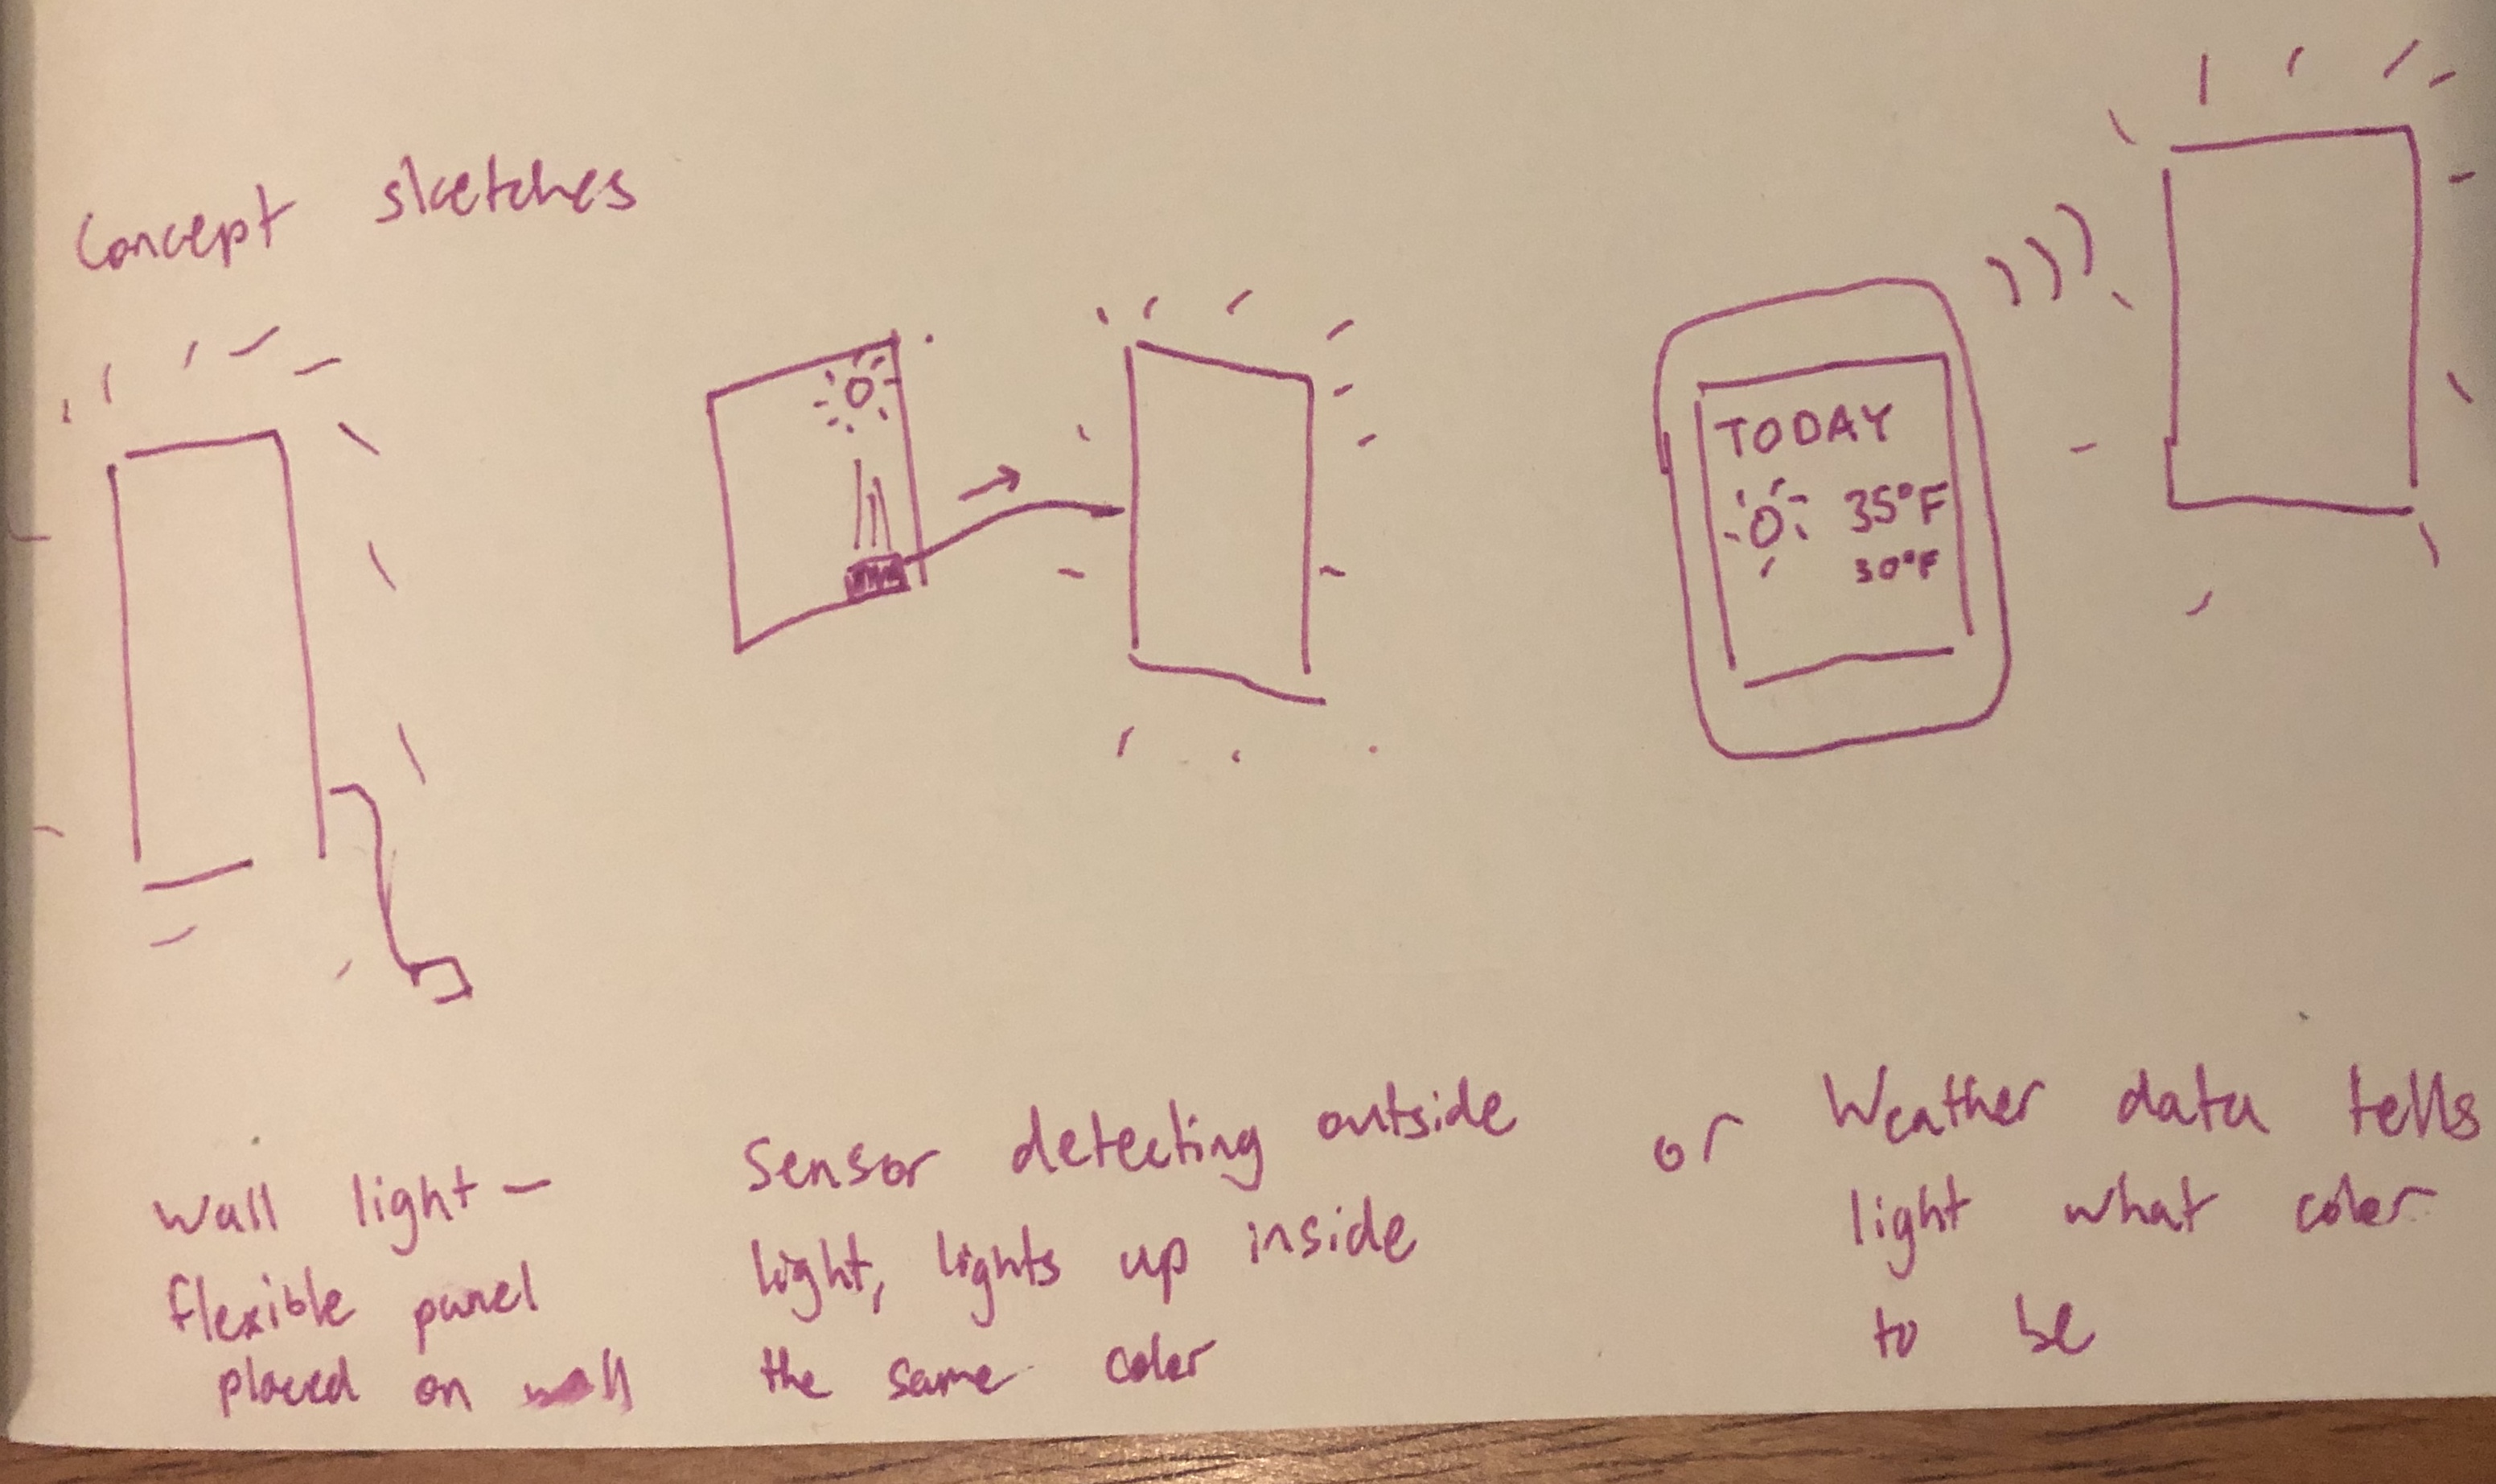 Concept sketches
TODAY
35°F
30°F
Wall light —
flexible panel
placed on wall
Sensor detecting outside
light, lights up inside
the same color
or
Weather data tells
light what color
to be